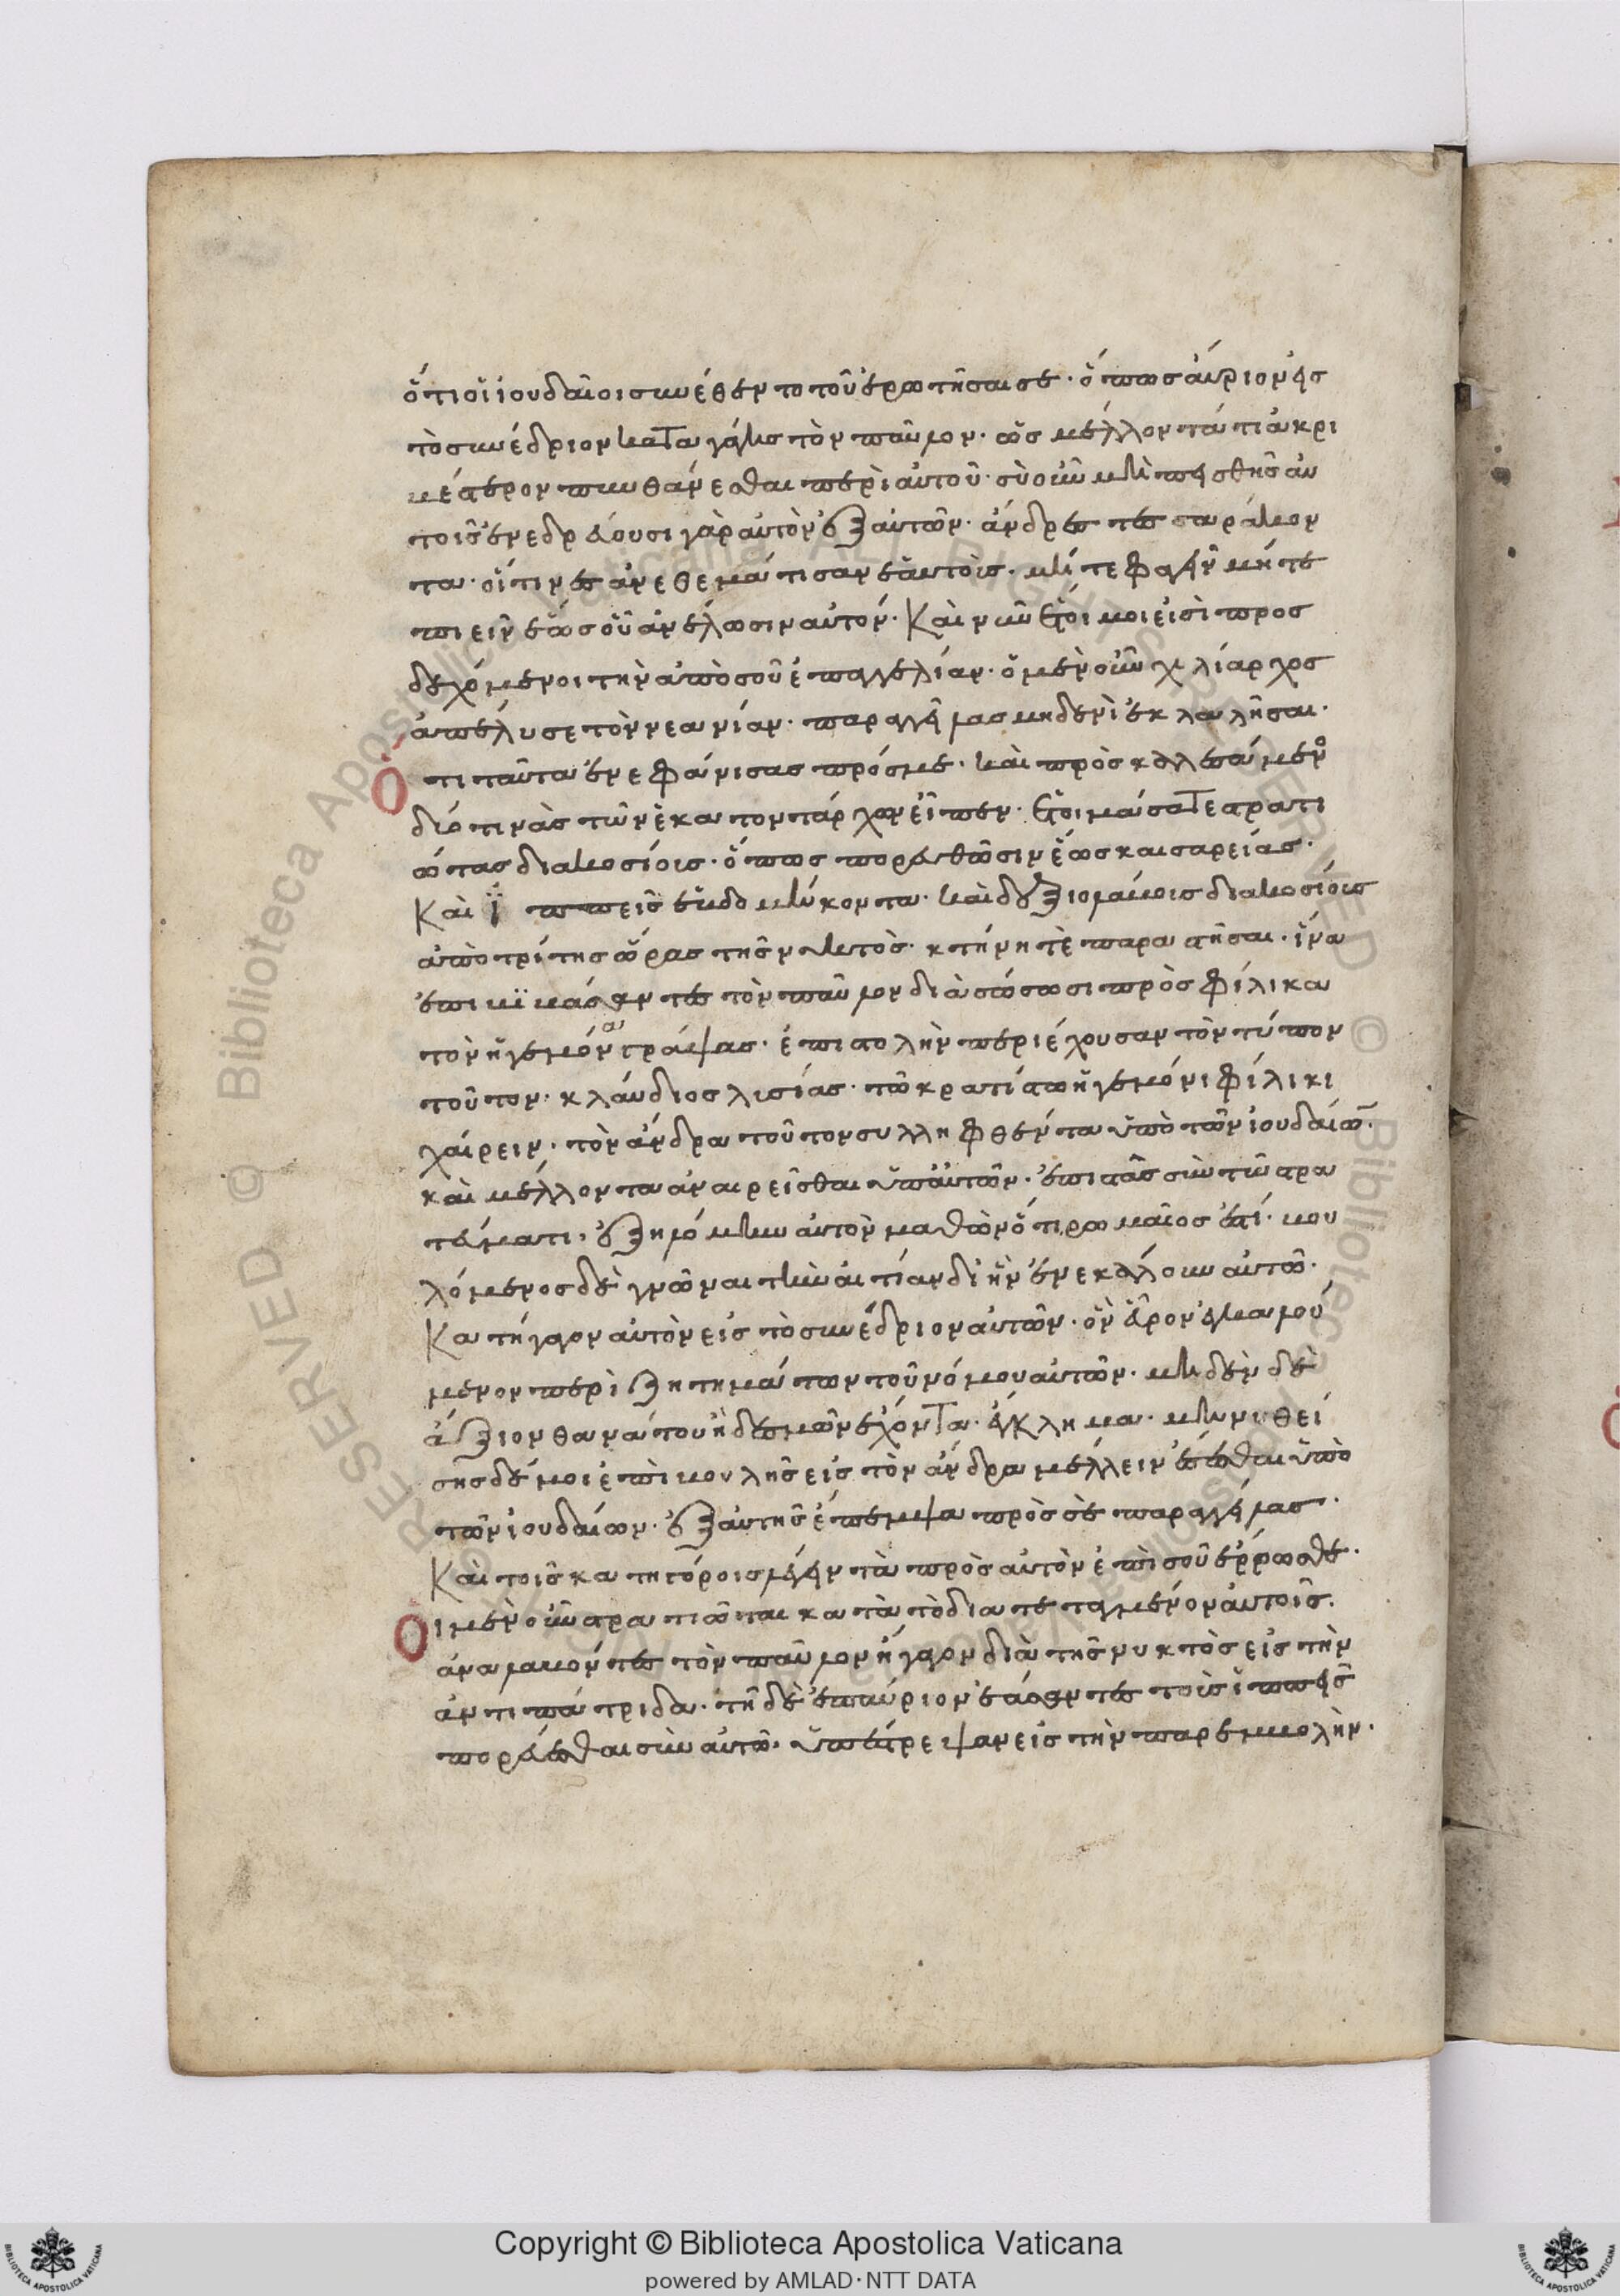 ὅτι οἱ ἰουδαῖοι συνέθεντο τοῦ ἐρωτῆσαι σε· ὅπως αὔριον εἰς
τὸ συνέδριον καταγάγεις τὸν παῦλον· ὡς μέλλοντά τι ἀκρι
βέστερον πυνθάνεσθαι περὶ αὐτοῦ· σὺ οὖν μὴ πεισθῆς αὐ
τοῖς ἐνεδρεύουσι γὰρ αὐτὸν ἐξ αὐτῶν· ἄνδρες τεσσαράκον
τα· οἵτινες ἀνεθεμάτισαν ἑαυτοῖς· μήτε φαγεῖν μήτε
πιεῖν ἕως οὗ ἀνέλωσιν αὐτόν· Καὶ νῦν ἕτοιμοι εἰσὶ προσ
δεχόμενοι τὴν ἀπὸ σοῦ ἐπαγγελίαν· ὁ μὲν οὖν χιλίαρχος
ἀπέλυσε τὸν νεανίαν· παραγγείλας μηδενὶ ἐκλαλῆσαι·
Ὅτι ταῦτα ἐνεφάνισας πρός με· καὶ προσκαλεσάμενος
δύο τινὰς τῶν ἑκατοντάρχων εἶπεν· ἑτοιμάσατε στρατι
ώτας διακοσίοις· ὅπως πορευθῶσιν ἕως καισαρείας·
Καὶ ἱππεῖς ἑβδομήκοντα· καὶ δεξιολάβοις διακοσίοις
ἀπὸ τρίτης ὥρας τῆς νυκτός· κτήνη τὲ παραστῆσαι· ἵνα
ἐπιβιβάσαντες τὸν παῦλον διασώσωσι πρὸς φίλικα
τὸν ἡγεμόνα γράψας· ἐπιστολὴν περιέχουσαν τὸν τύπον
τοῦτον· κλαύδιος λυσίας· τῶ κρατίστω ἡγεμόνι φίλικι
χαίρειν· τὸν ἄνδρα τοῦτον συλληφθέντα ὑπὸ τῶν ἰουδαίων·
καὶ μέλλοντα ἀναιρεῖσθαι ὑπ' αὐτῶν· ἐπιστὰς σὺν τῶ στρα
τεύματι· ἐξηλόμην αὐτὸν μαθὼν ὅτι ρωμαῖος ἐστί· βου
λόμενος δὲ γνῶναι τὴν αἰτίαν δι' ἣν ἐνεκάλουν αὐτῶ·
Κατήγαγον αὐτὸν εἰς τὸ συνέδριον αὐτῶν· ὃν εὗρον ἐγκαλού
μενον περὶ ζητημάτων τοῦ νόμου αὐτῶν· μηδὲν δὲ
ἄξιον θανάτου ἢ δεσμῶν ἔχοντα· ἔγκλημα· μηνυθεί
σης δέ μοι ἐπιβουλῆς εἰς τὸν ἄνδρα μέλλειν ἔσεσθαι ὑπὸ
τῶν ἰουδαίων· ἐξαυτῆς ἔπεμψα πρὸς σὲ παραγγείλας·
Καὶ τοῖς κατηγόροις λέγειν τὰ πρὸς αὐτὸν ἐπὶ σοῦ ἔρρωσθε·
Οἱ μὲν οὖν στρατιῶται κατὰ τὸ διατεταγμένον αὐτοῖς·
ἀναλαβόντες τὸν παῦλον ἤγαγον διὰ τῆς νυκτὸς εἰς τὴν
ἀντιπάτριδα· τῆ δὲ ἐπαύριον ἐάσαντες τοὺς ἱππεῖς
πορεύεσθαι σὺν αὐτῶ· ὑπέστρεψαν εἰς τὴν παρεμβολήν·
Copyright © Biblioteca Apostolica Vaticana
powered by AMLAD·NTT DATA